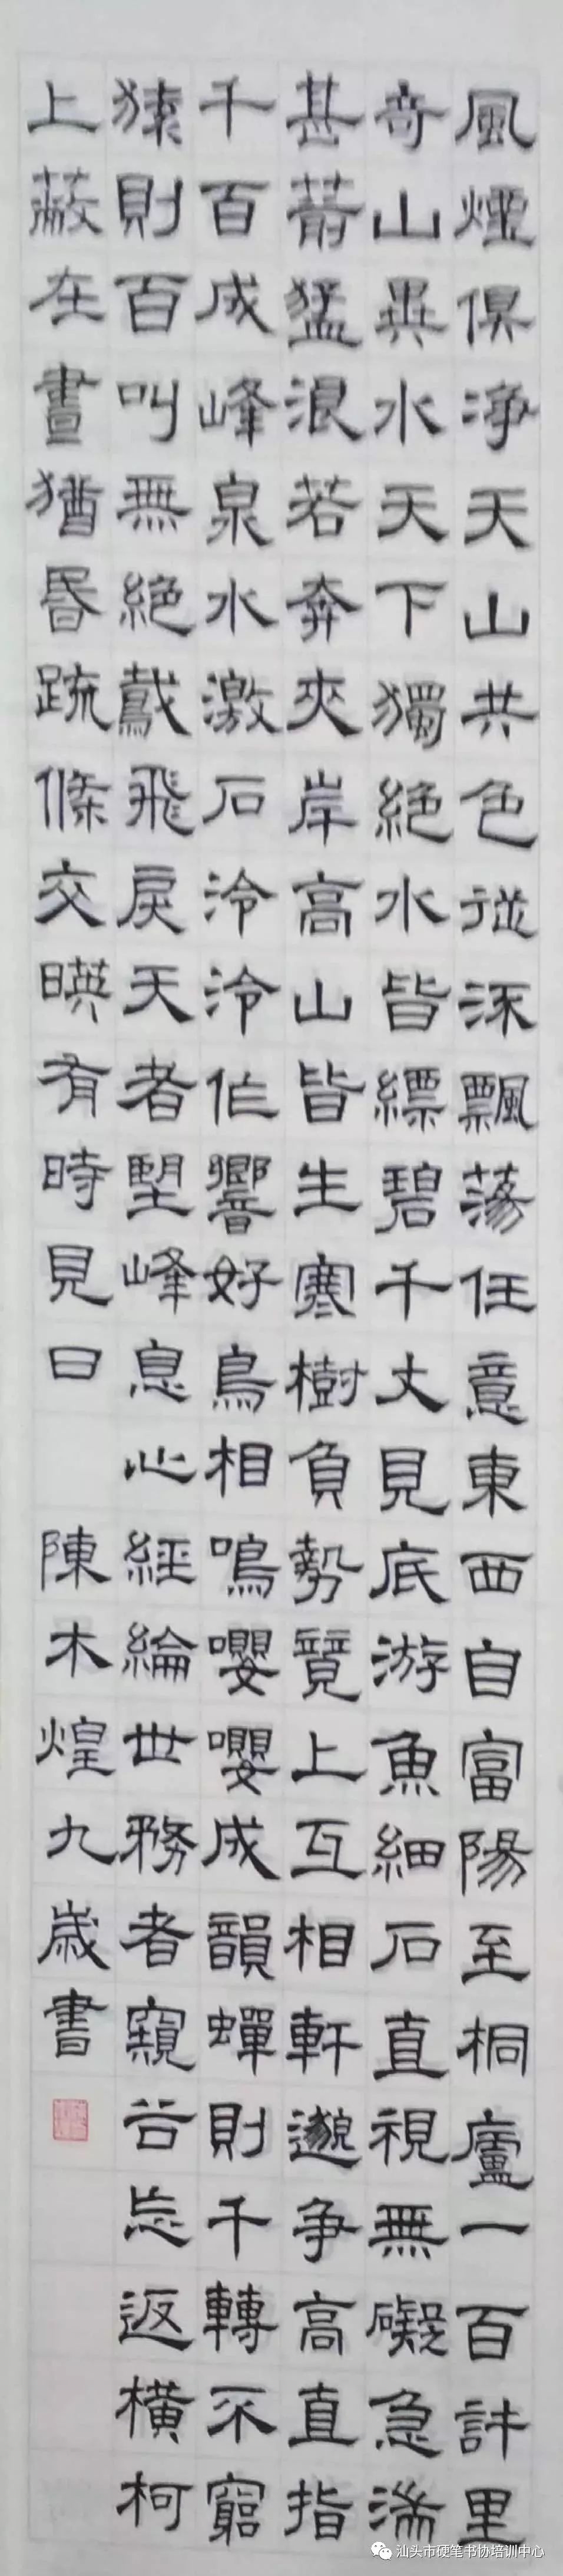 風煙俱淨天山共色從流飄蕩任意東西自富陽至桐廬一百許里
奇山異水天下獨絶水皆縹碧千丈見底游魚細石直視無礙急湍
甚箭猛浪若奔夾岸高山皆生寒樹負勢競上互相軒邈争高直指
千百成峰泉水激石泠泠作響好鳥相鳴嚶嚶成韻蟬則千轉不窮
猿則百叫無絶鳶飛戾天者望峰息心經綸世務者窺谷忘返横柯
上蔽在晝猶昏疏條交映有時見日 陳木煌九歲書
汕头市硬笔书协培训中心